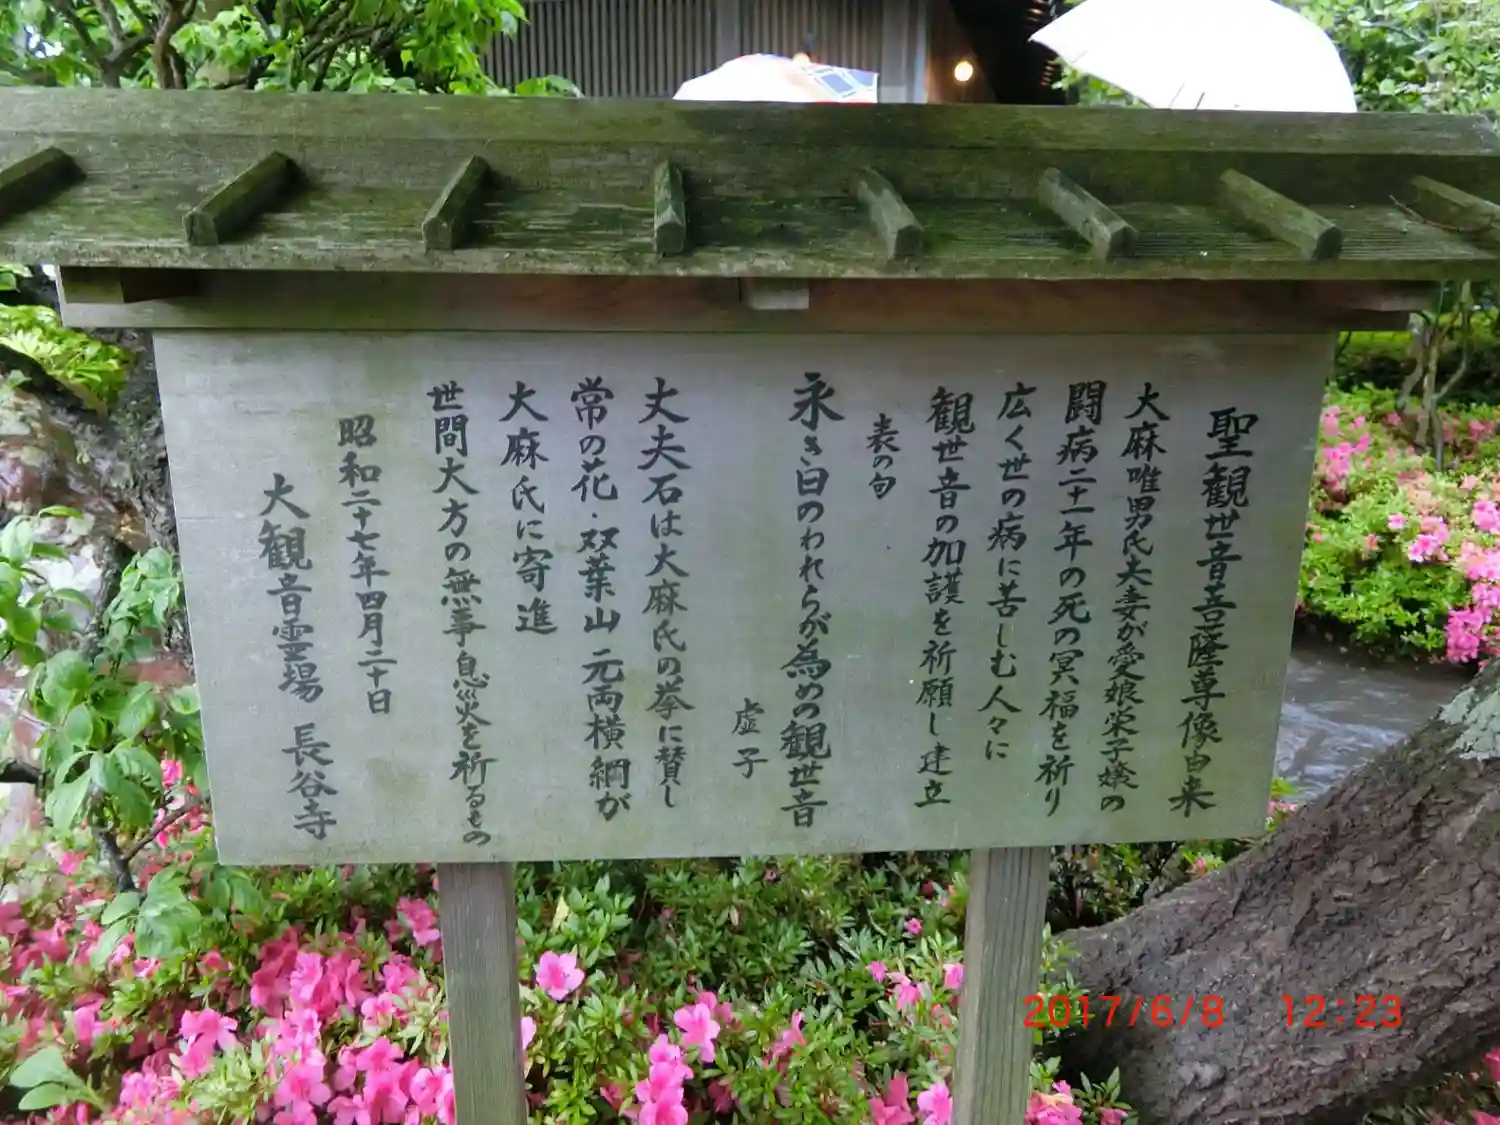 聖観世音菩薩尊像由来
大麻唯男氏夫妻が愛娘栄子嬢の
闘病二十一年の死の冥福を祈り
広く世の病に苦しむ人々に
観世音の加護を祈願し建立
表の句
永き日のわれらが為めの観世音
虚子
丈夫石は大麻氏の挙に賛し
常の花・双葉山 元両横綱が
大麻氏に寄進
世間大方の無事息災を祈るもの
昭和二十七年四月二十日
大観音霊場 長谷寺
2017/6/8 12:23